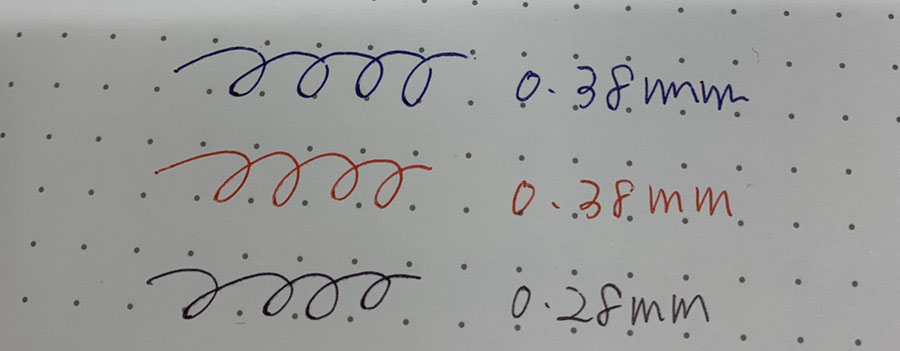 0.38mm
0.38mm
0.28mm